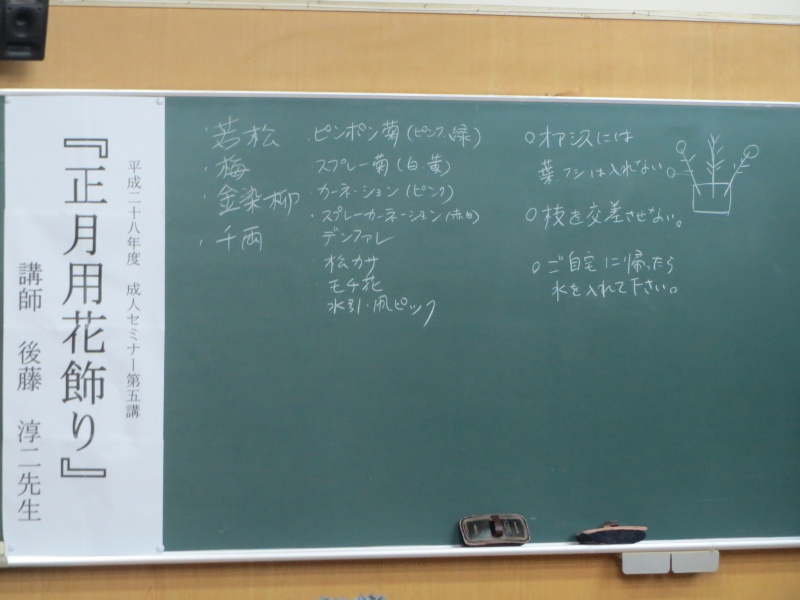 平成二十八年度 成人セミナー第五講
『正月用花飾り』
講師 後藤 淳二先生
・若松
・梅
・金染柳
・千両
・ピンポン菊(ピンク、緑)
スプレー菊(白・黄)
・カーネーション(ピンク)
・スプレーカーネーション(赤白)
デンファレ
・松カサ
モチ花
水引・凧ピック
○オアシスには
葉フシは入れない。
○枝を交差させない。
○ご自宅に帰ったら
水を入れて下さい。